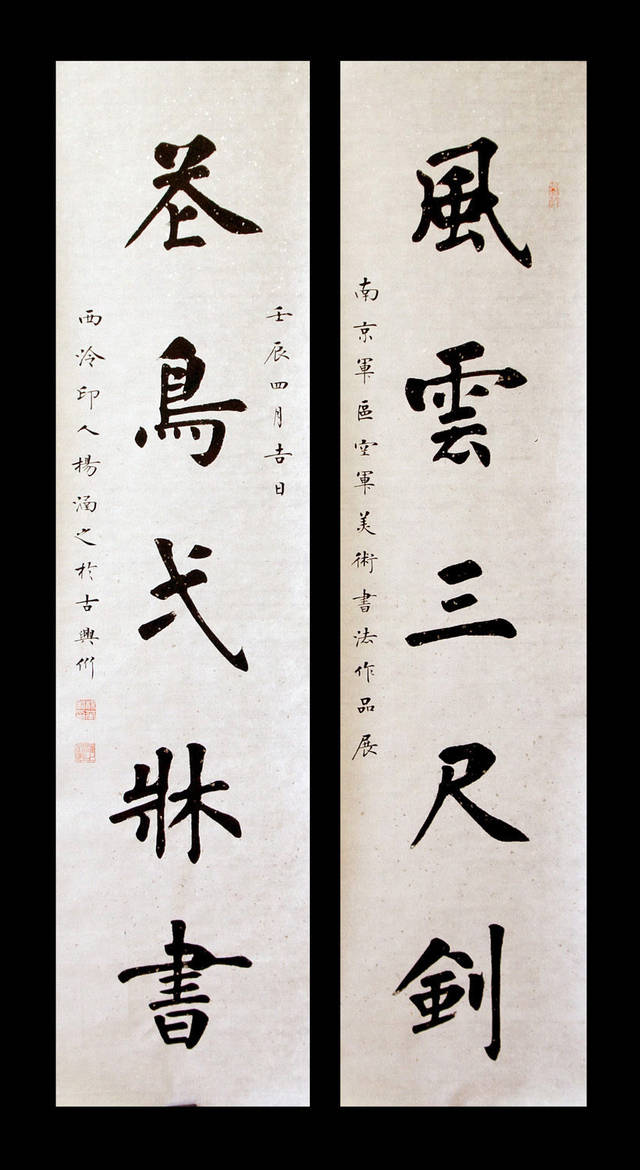 風雲三尺劍
南京軍區空軍美術書法作品展
壬辰四月吉日
花鳥弌牀書
西泠印人楊涵之於古興州